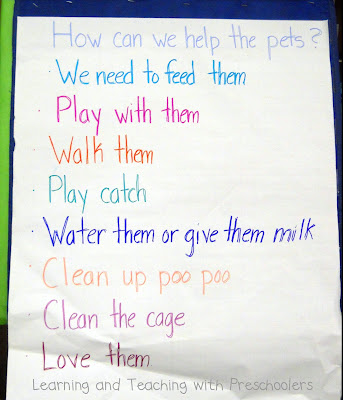 How can we help the pets?
· We need to feed them
· Play with them
· Walk them
· Play catch
· Water them or give them milk
· Clean up poo poo
· Clean the cage
· Love them
Learning and Teaching with Preschoolers